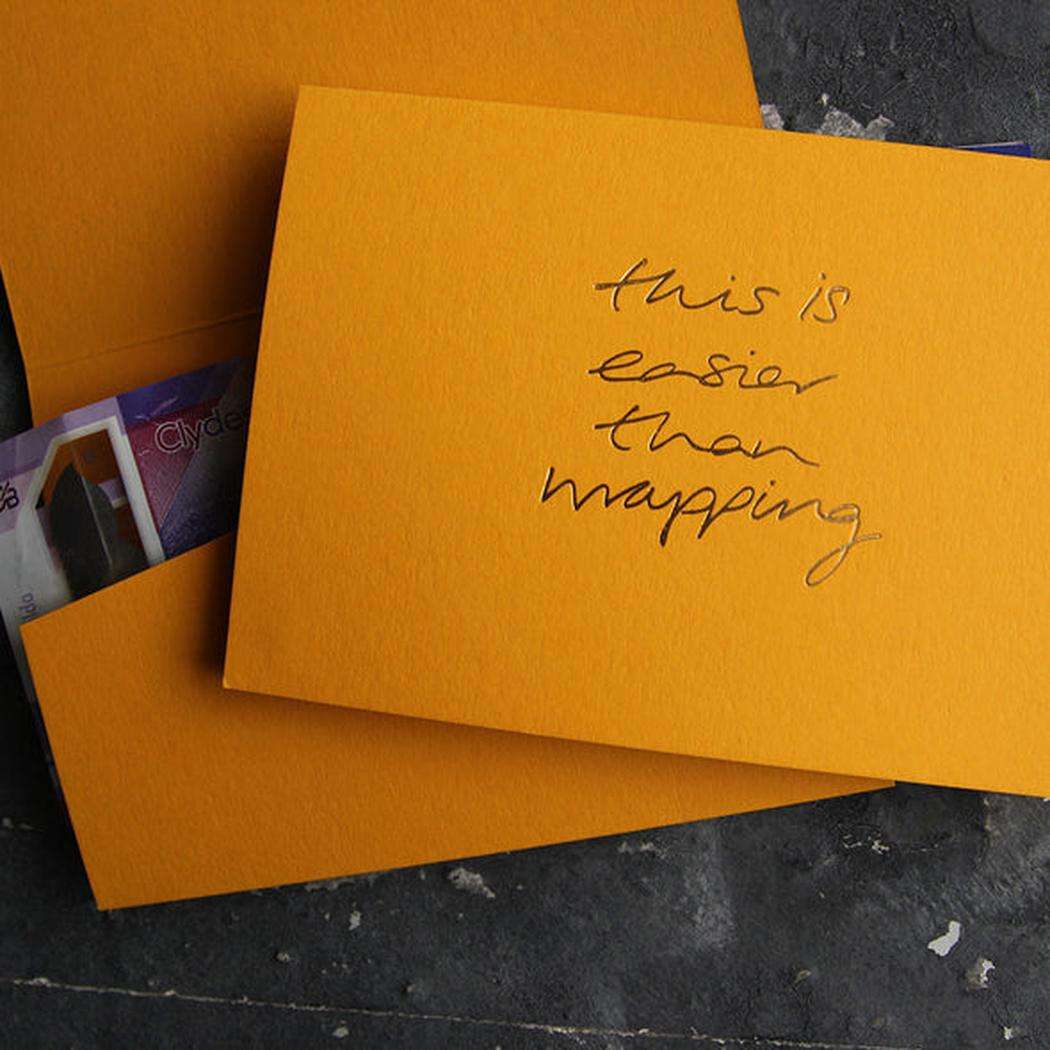 this is
easier
than
wrapping
Clyde